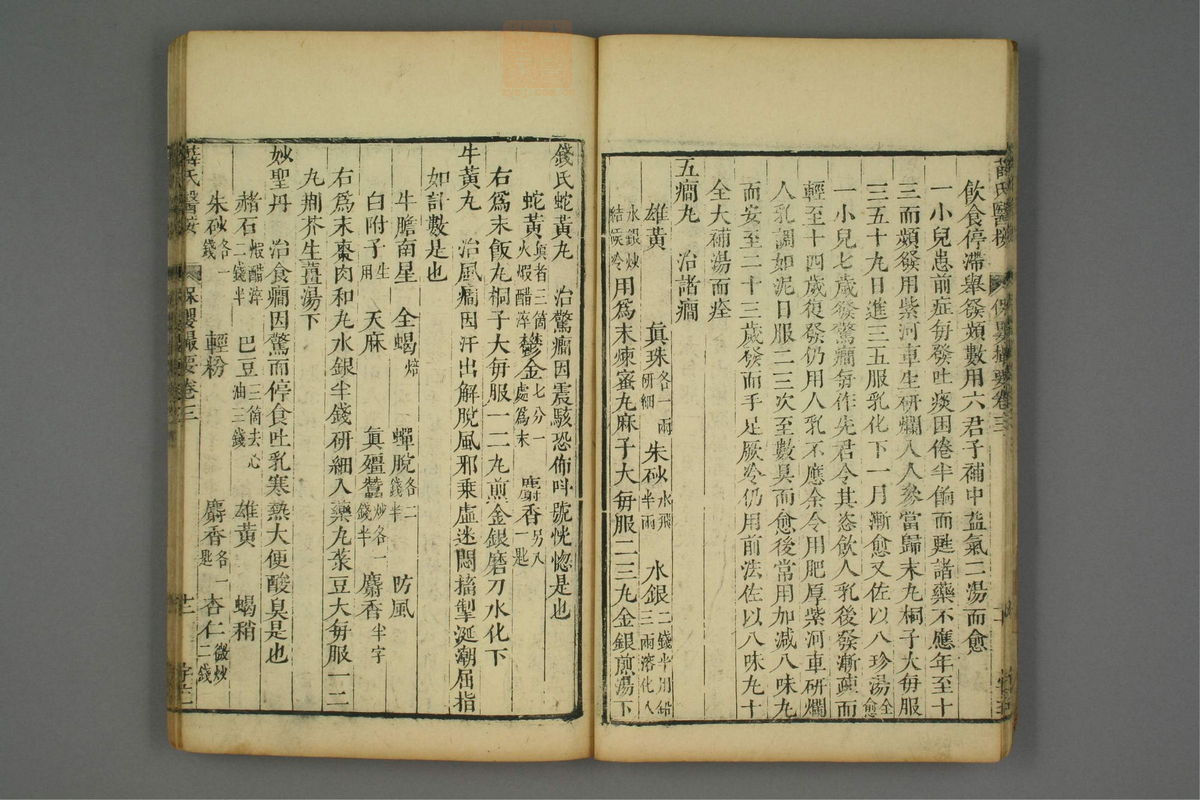 薛氏醫按 保嬰撮要卷三
飲食停滯舉發頻數用六君子補中益氣二湯而愈
一小兒患前症每發吐痰困倦半餉而甦諸藥不應年至十
三而頻發用紫河車生研爛人人參當歸末丸桐子大每服
三五十九日進三五服乳化下一月漸愈又佐以八珍湯全愈
一小兒七歲發驚癎每作先君令其恣飲人乳後發漸疎而
輕至十四歲復發仍用人乳不應余令用肥厚紫河車研爛
人乳調如泥日服二三次至數具而愈後常用加減八味丸
而安至二十三歲發而手足厥冷仍用前法佐以八味丸十
全大補湯而痊
五癎丸 治諸癎
雄黃 眞珠各一兩研細 朱砂半兩水飛 水銀二錢半用鉛三兩溶化入
水銀炒結候冷用爲末煉蜜丸麻子大每服二三丸金銀煎湯下
錢氏蛇黃丸 治驚癎因震駭恐怖呌號恍惚是也
蛇黃眞者三箇火煅醋淬 鬱金七分一處爲末 麝香另入一匙
右爲末飯丸桐子大每服一二丸煎金銀磨刀水化下
牛黃丸 治風癎因汗出解脫風邪乘虛迷悶搐掣涎潮屈指
如計數是也
牛膽南星 全蝎焙 蟬脫各二錢半 防風
白附子生用 天麻 眞殭蠶炒各一錢半 麝香半字
右爲末棗肉和丸水銀半錢研細入藥丸菉豆大每服一二
丸荆芥生薑湯下
妙聖丹 治食癎因驚而停食吐乳寒熱大便酸臭是也
赭石煅醋淬二錢半 巴豆三箇去心油三錢 雄黃 蝎稍
朱砂各一錢 輕粉 麝香各一匙 杏仁微炒二錢
薛氏醫按 保嬰撮要卷三